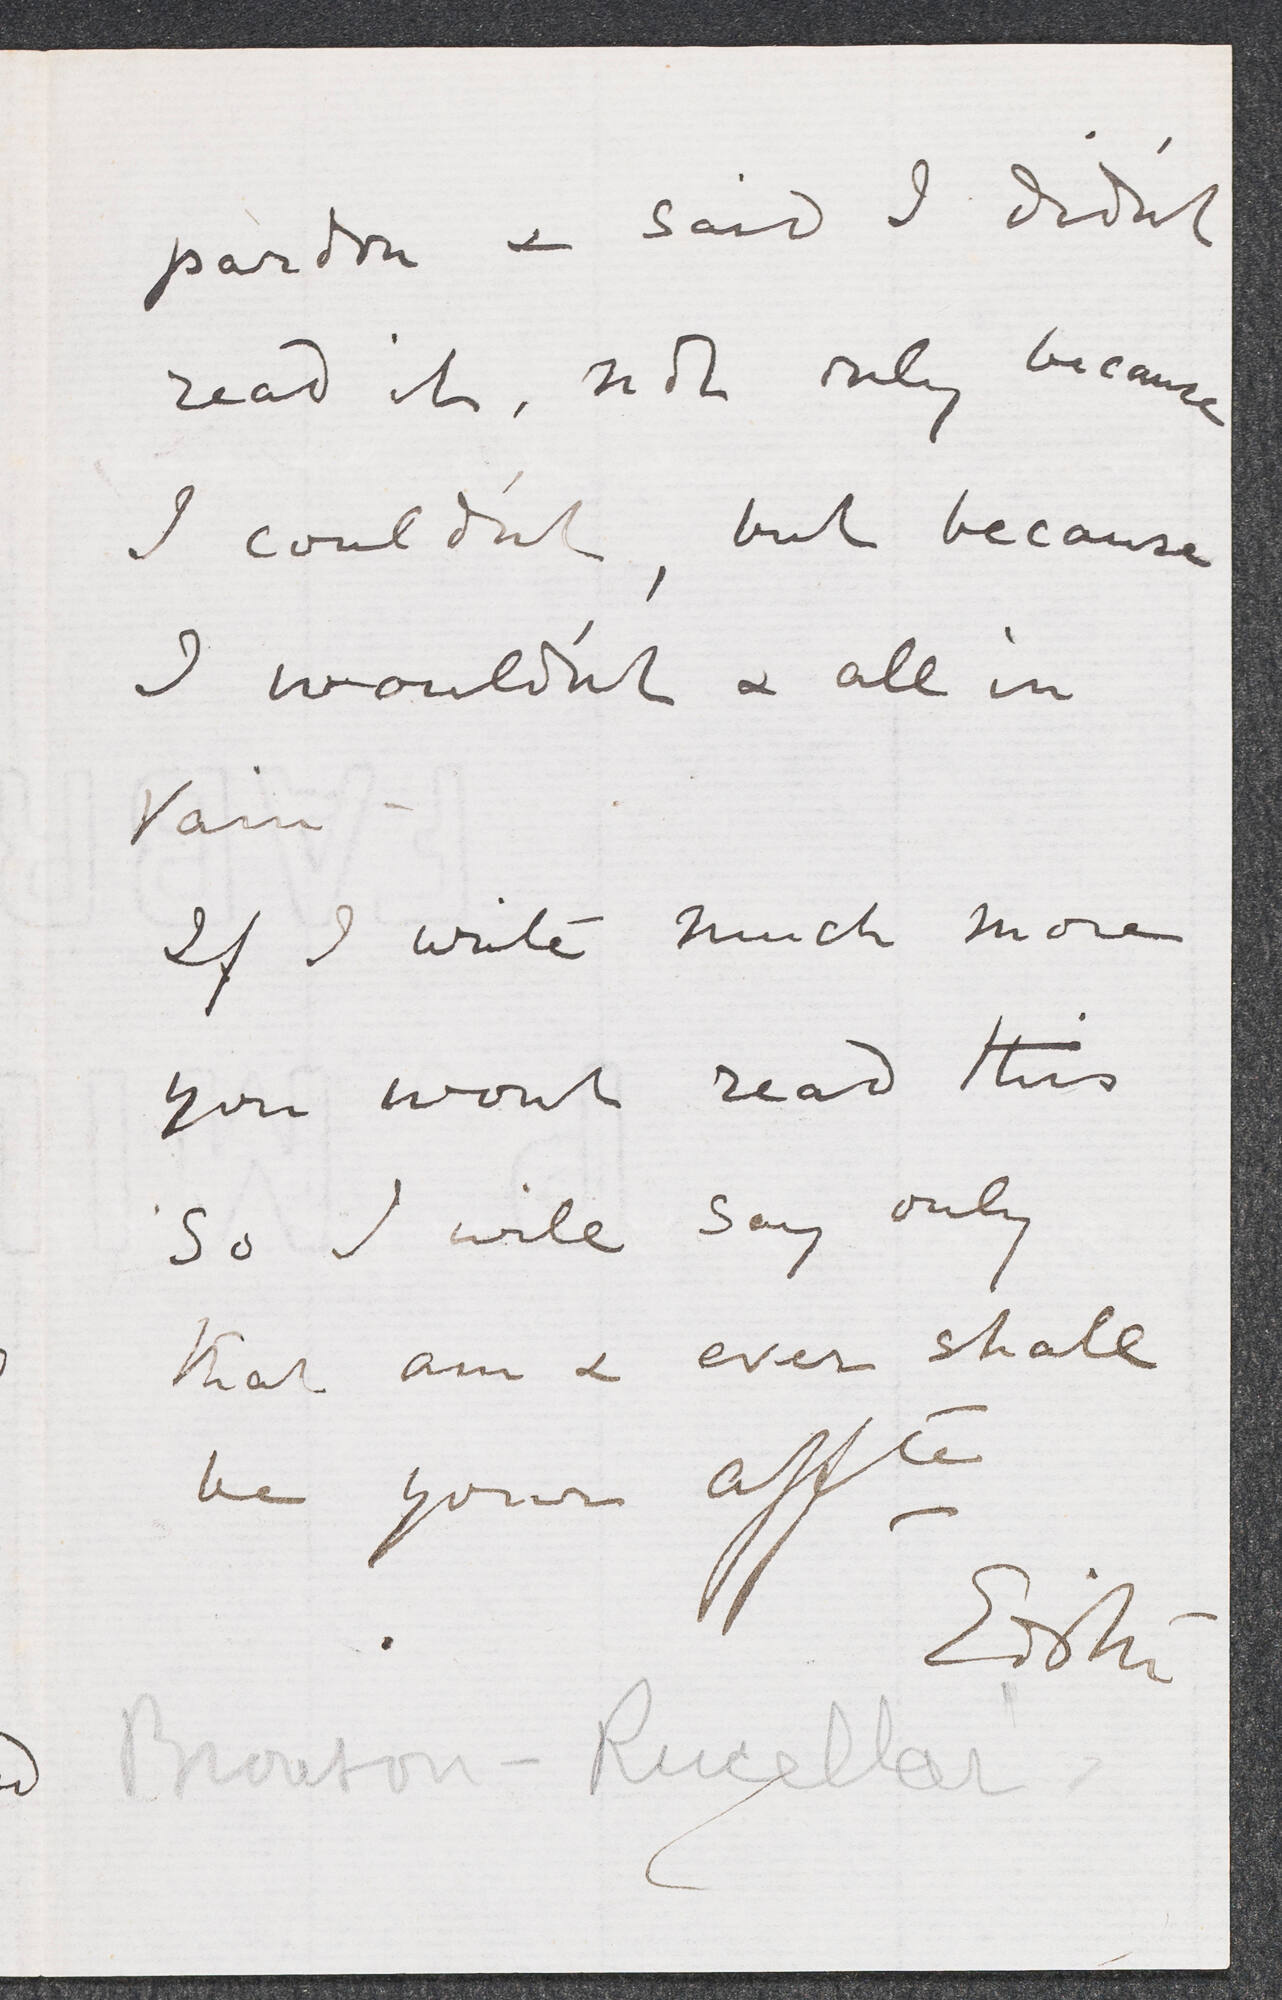 pardon & said I didn't
read it, not only because
I couldn't, but because
I wouldn't & all in
vain -
If I write much more
you wont read this
So I will say only
that am & ever shall
be yours affte
Edith
Bronson - Rucellai